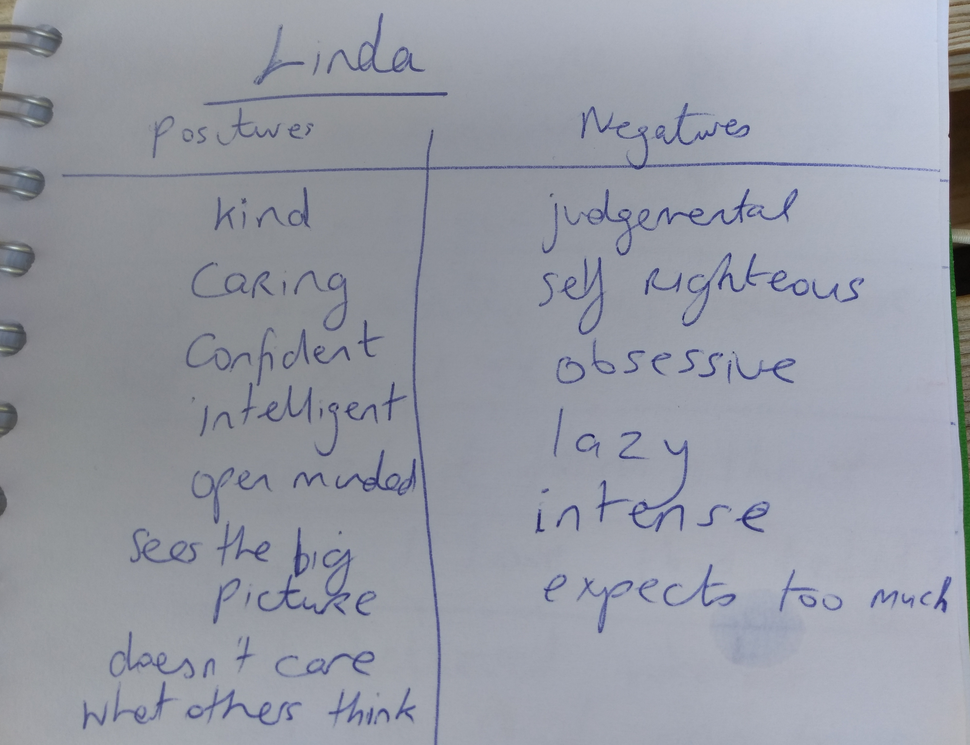 Linda
Positives
Negatives
kind
judgemental
Caring
self righteous
Confident
obsessive
intelligent
lazy
open minded
intense
sees the big
picture
expects too much
doesn't care
what others think